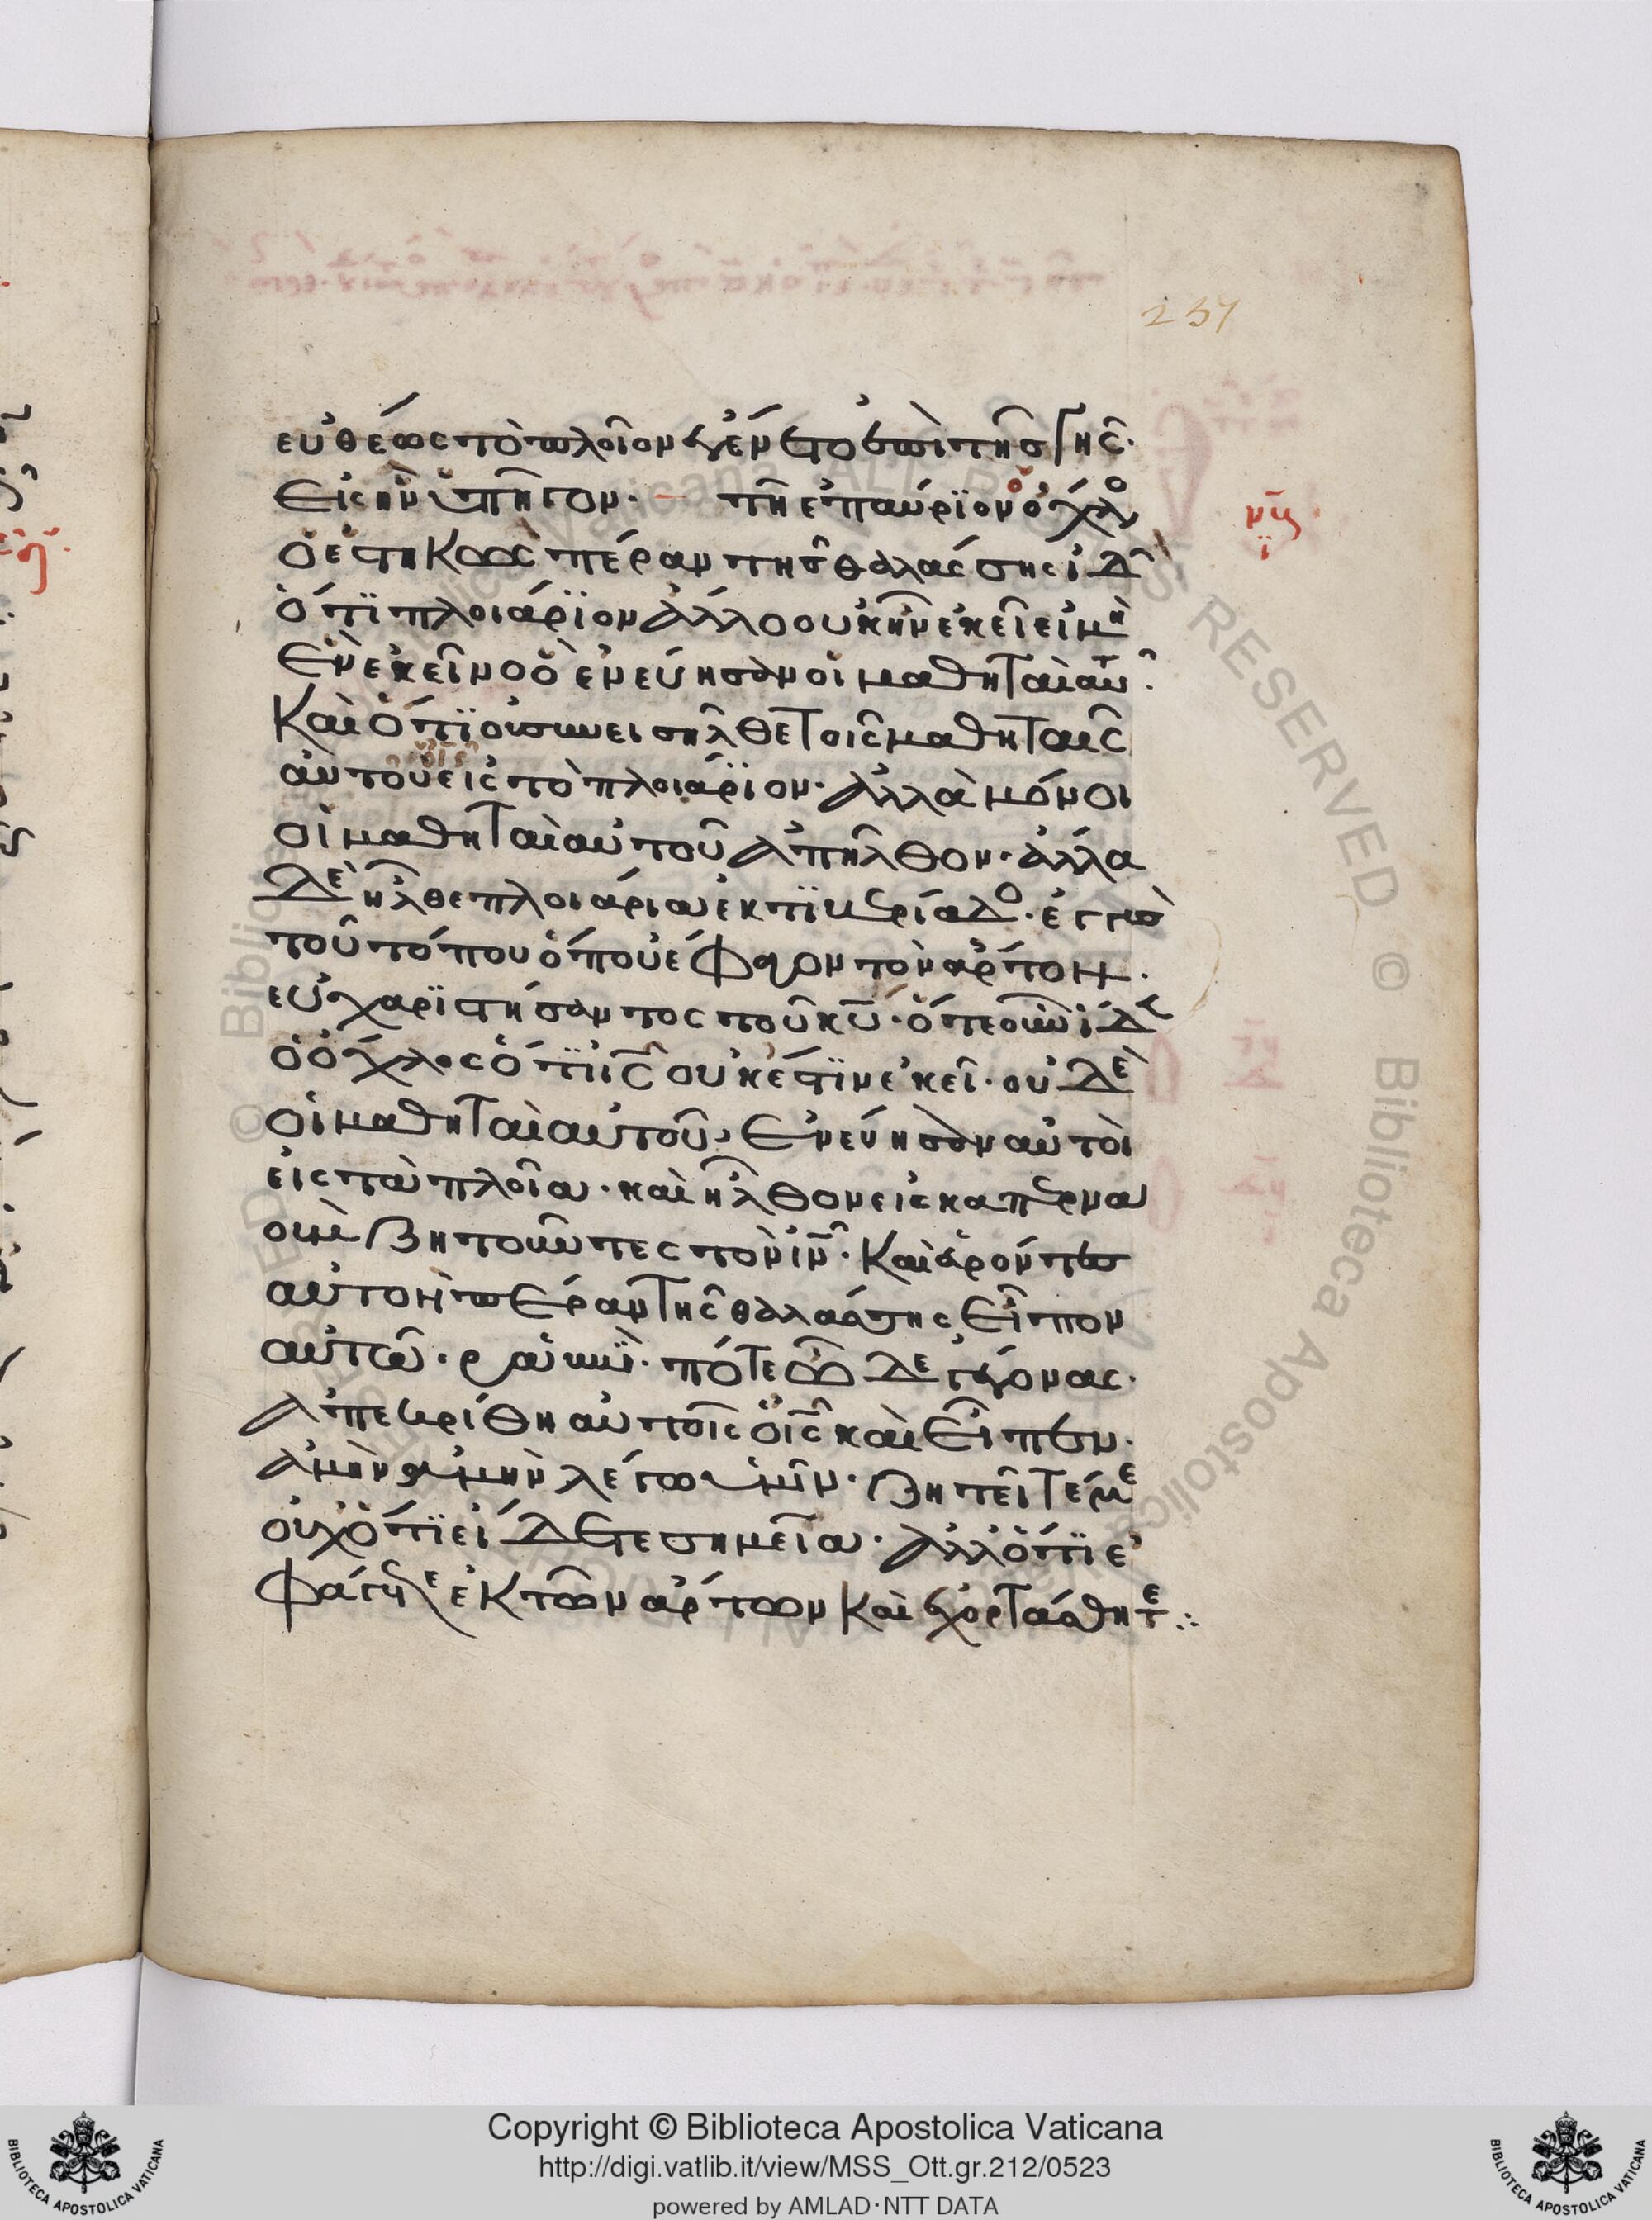 257
εὐθέως τὸ πλοῖον ἐγένετο ἐπὶ τῆς γῆς·
εἰς ἣν ὑπῆγον· τῆ ἐπαύριον ὁ ὄχλο
ὁ ἑστηκὼς πέραν τῆς θαλάσσης ἰδ
ὅτι πλοιάριον ἄλλο οὐκ ἦν ἐκεῖ εἰ μὴ
ἓν ἐκεῖνο ὃ ἐνέβησαν οἱ μαθηταὶ αὐτ·
καὶ ὅτι οὐ συνεισῆλθε τοῖς μαθηταῖς
αὐτοῦ ὁ ις εἰς τὸ πλοιάριον· ἀλλὰ μόνοι
οἱ μαθηταὶ αὐτοῦ ἀπῆλθον· ἄλλα
δὲ ἦλθε πλοιάρια ἐκ τιβεριάδο· ἐγγὺς
τοῦ τόπου ὅπου ἔφαγον τὸν ἄρτον·
εὐχαριστήσαντος τοῦ κυ· ὅτε οὖν ἴδε
ὁ ὄχλος ὅτι ις οὐκ ἔστιν ἐκεῖ· οὐδὲ
οἱ μαθηταὶ αὐτοῦ, ἐνέβησαν αὐτοὶ
εἰς τὰ πλοῖα· καὶ ἦλθον εἰς καπερνα
οὺμ ζητοῦντες τὸν ιν· καὶ εὑρόντες
αὐτὸν πέραν τῆς θαλάσσης εἶπον
αὐτῶ· ραββὶ· πότε ὧδε γέγονας·
ἀπεκρίθη αὐτοῖς ὁ ις καὶ εἶπεν·
ἀμὴν ἀμὴν λέγω ὑμῖν· ζητεῖτέ με
οὐχ ὅτι εἴδετε σημεῖα· ἀλλ' ὅτι ἐ
φάγετε ἐκ τῶν ἄρτων καὶ ἐχορτάσθητε
Copyright © Biblioteca Apostolica Vaticana
http://digi.vatlib.it/view/MSS_Ott.gr.212/0523
powered by AMLAD·NTT DATA
BIBLIOTECA APOSTOLICA VATICANA
BIBLIOTECA APOSTOLICA VATICANA